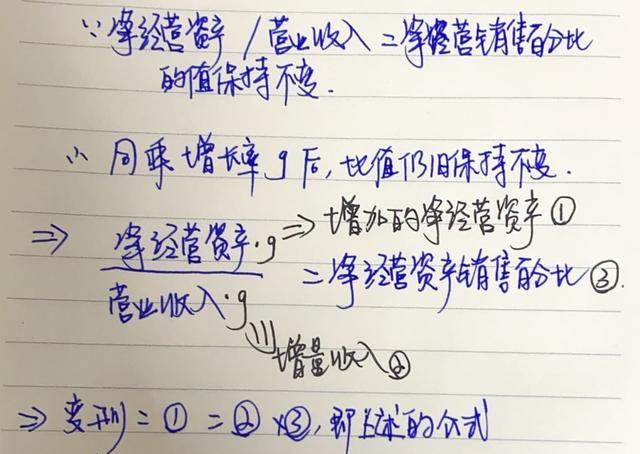 ∵净经营资产/营业收入=净经营销售百分比
的值保持不变.
∴ 同乘增长率g后,比值仍旧保持不变.
⇒ 净经营资产·g ⇒增加的净经营资产①
营业收入·g =净经营资产销售百分比③.
增量收入②
⇒ 变形=①=②×③,即上述的公式